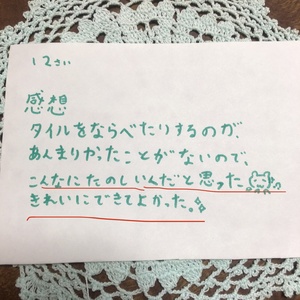 12さい
感想
タイルをならべたりするのが、
あんまりやったことがないので、
こんなにたのしいんだと思った
きれいにできてよかった。